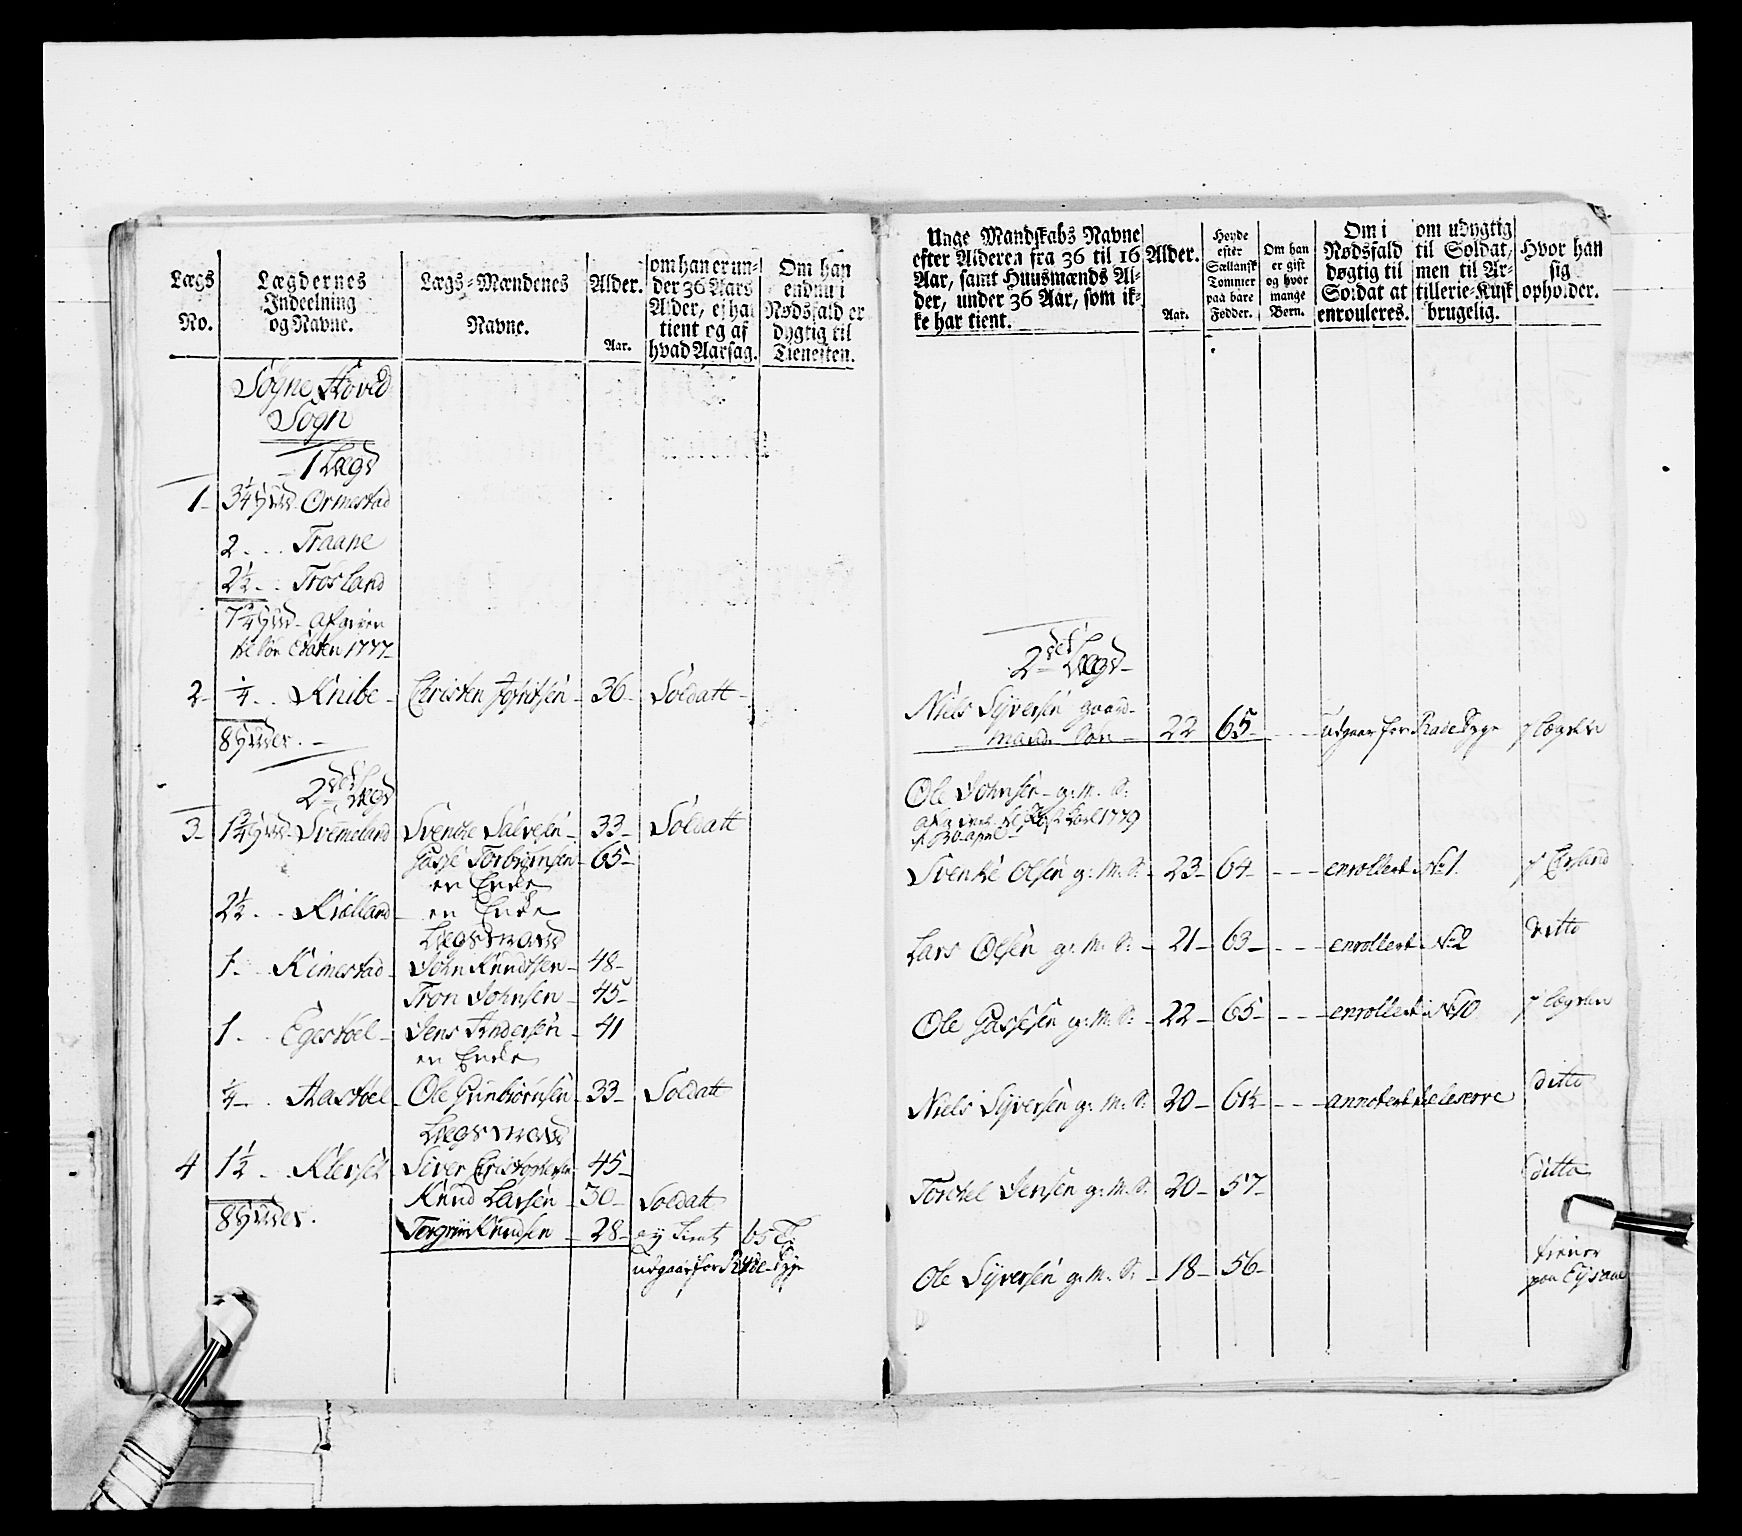 Lægs
No.
Lægdernes
Indeelning
og Navne.
Lægs-Mændenes
Navne.
Alder.
Aar.
om han er un-
der 36 Aars
Alder, ej har
tient og af
hvad Aarsag.
Om han
endnu i
Nødsfald er
dygtig til
Tienesten.
Sogne
Sogn
1 Lægd
1 3¼ Hud. Ormestad
2 . . Traane
2½ . . Trosland
7¾ Hud. afgiven
til Søe Etaten 1777
2 ¼ . . Knibe Christen 36 Soldatt
8 Huder.
2det Lægd
3 1¾ Hud. Svenke Salvesen 33 Soldatt
Gasse Torbiørnsen 65
en Enke
2½ . . en Enke
Lægsmand
1 . . Kimestad John Knudtsen 48
Tron Johnsen 45
1 . . Egestøel Jens Andersen 41
en Enke
¼ . . Aastøel Ole 33 Soldatt
Lægsmand
4 1½ . . Siver 45
Knud Larsen 30 Soldatt
8 Huder.
Torgrim Knudsen 28 ej tient 65 T.
udgaar for
Unge Mandskabs Navne
efter Alderen fra 36 til 16
Aar, samt Huusmænds Al-
der, under 36 Aar, som ik-
ke har tient.
Alder.
Aar.
Høyde
efter
Sællansk
Tommer
paa bare
Fødder.
Om han
er gift
og hvor
mange
Børn.
Om i
Nødsfald
døgtig til
Soldat at
enrouleres.
om udygtig
til Soldat,
men til Ar-
tillerie-Kusk
brugelig.
Hvor han
sig
opholder.
2det Lægd
Niels Syversen gaard-
mands Søn 22 65 udgaar for i Lægden
Ole Johnsen g: M. S:
1779
d. 30 april
Svenke Olsen g: M. S. 23 64 enrollert No 1.
Lars Olsen g: M. S: 21 63 enrollert No 2 ditto
Ole Gassesen g: M. S: 22 65 enrollert No 10 i Lægden
Niels Syversen g: M. S: 20 61½ annotert til reserve ditto
Torckel Jensen g: M. S. 20 57 ditto
Ole Syversen g: M. S: 18 56 tiener
paa